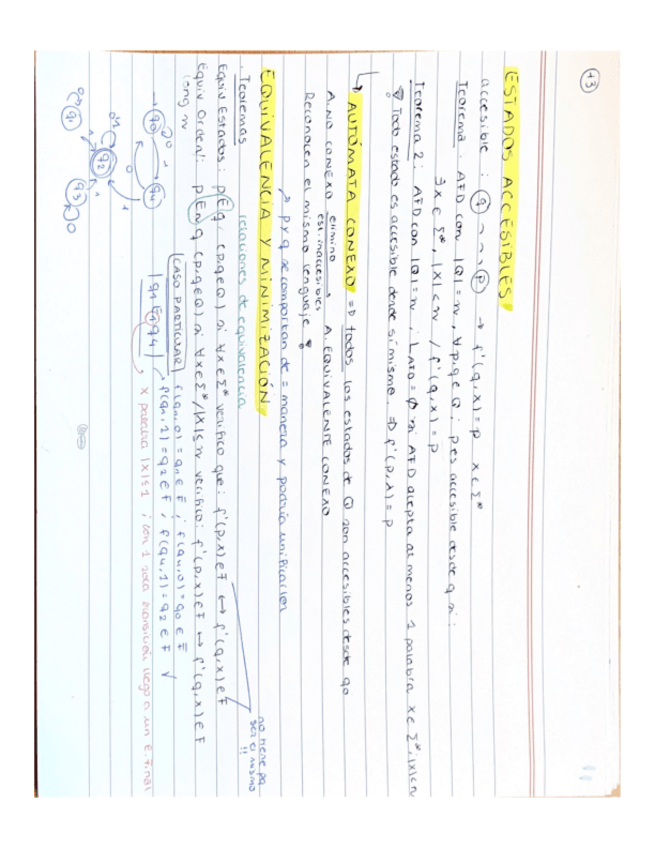 +3
ESTADOS ACCESIBLES
accesible : q ⤳ p → f'(q,x) = p x ∈ Σ*
Teorema : AFD con |Q| = n, ∀p,q ∈ Q ; p es accesible desde q si :
∃x ∈ Σ*, |x| < n / f'(q,x) = p
Teorema 2 : AFD con |Q| = n ; L = ∅ si AFD acepta al menos 1 palabra x ∈ Σ*; |x| < n
Todo estado es accesible desde sí mismo ⇒ f'(p,λ) = p
↳ AUTÓMATA CONEXO ⇒ todos los estados de Q son accesibles desde q0
A. NO CONEXO elimino est. inaccesibles → A. EQUIVALENTE CONEXO
Reconocen el mismo lenguaje !
↗ p y q se comportan de = manera y podría unificarlos
EQUIVALENCIA Y MINIMIZACIÓN
. Teoremas relaciones de equivalencia
no tiene pq ser el mismo !!
Equiv Estados : pEq (p,q ∈ Q) si ∀x ∈ Σ* verifico que : f'(p,x) ∈ F ↔ f'(q,x) ∈ F
Equiv Orden : pEnq (p,q ∈ Q) si ∀x ∈ Σ* / |x| ≤ n verifico : f'(p,x) ∈ F ↔ f'(q,x) ∈ F
long n
CASO PARTICULAR
q1 E1 q4
x palabra |x| ≤ 1 ; con 1 sola transición llego a un E. final
q0 q4
q2
q1 q3